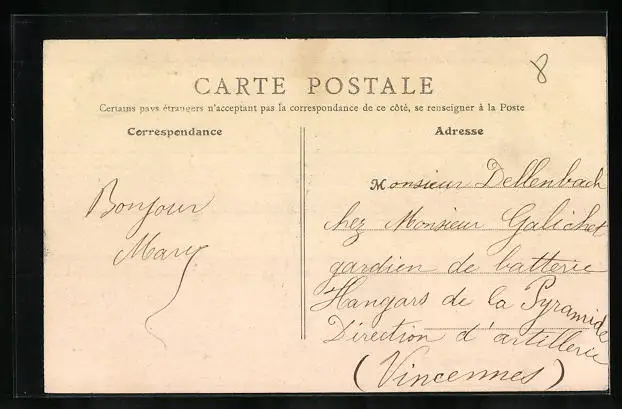 8
CARTE POSTALE
Certains pays étrangers n'acceptant pas la correspondance de ce côté, se renseigner à la Poste
Correspondance
Adresse
Bonjour
Mary
Monsieur Dellenbach
chez Monsieur Galichet
gardien de batterie
Hangars de la Pyramide
Direction d'artillerie
(Vincennes)